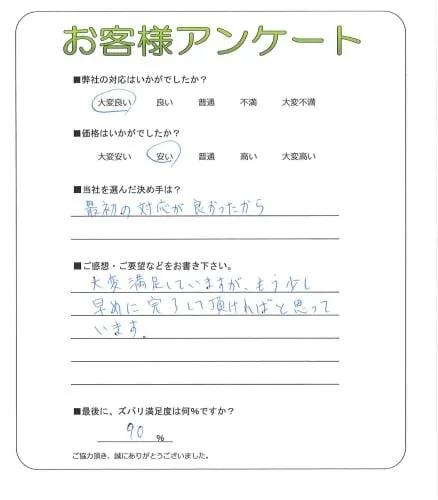 お客様アンケート
■弊社の対応はいかがでしたか？
大変良い 良い 普通 不満 大変不満
■価格はいかがでしたか？
大変安い 安い 普通 高い 大変高い
■当社を選んだ決め手は？
最初の対応が良かったから
■ご感想・ご要望などをお書き下さい。
大変満足していますが、もう少し
早めに完了して頂ければと思って
います。
■最後に、ズバリ満足度は何%ですか？
90 %
ご協力頂き、誠にありがとうございました。